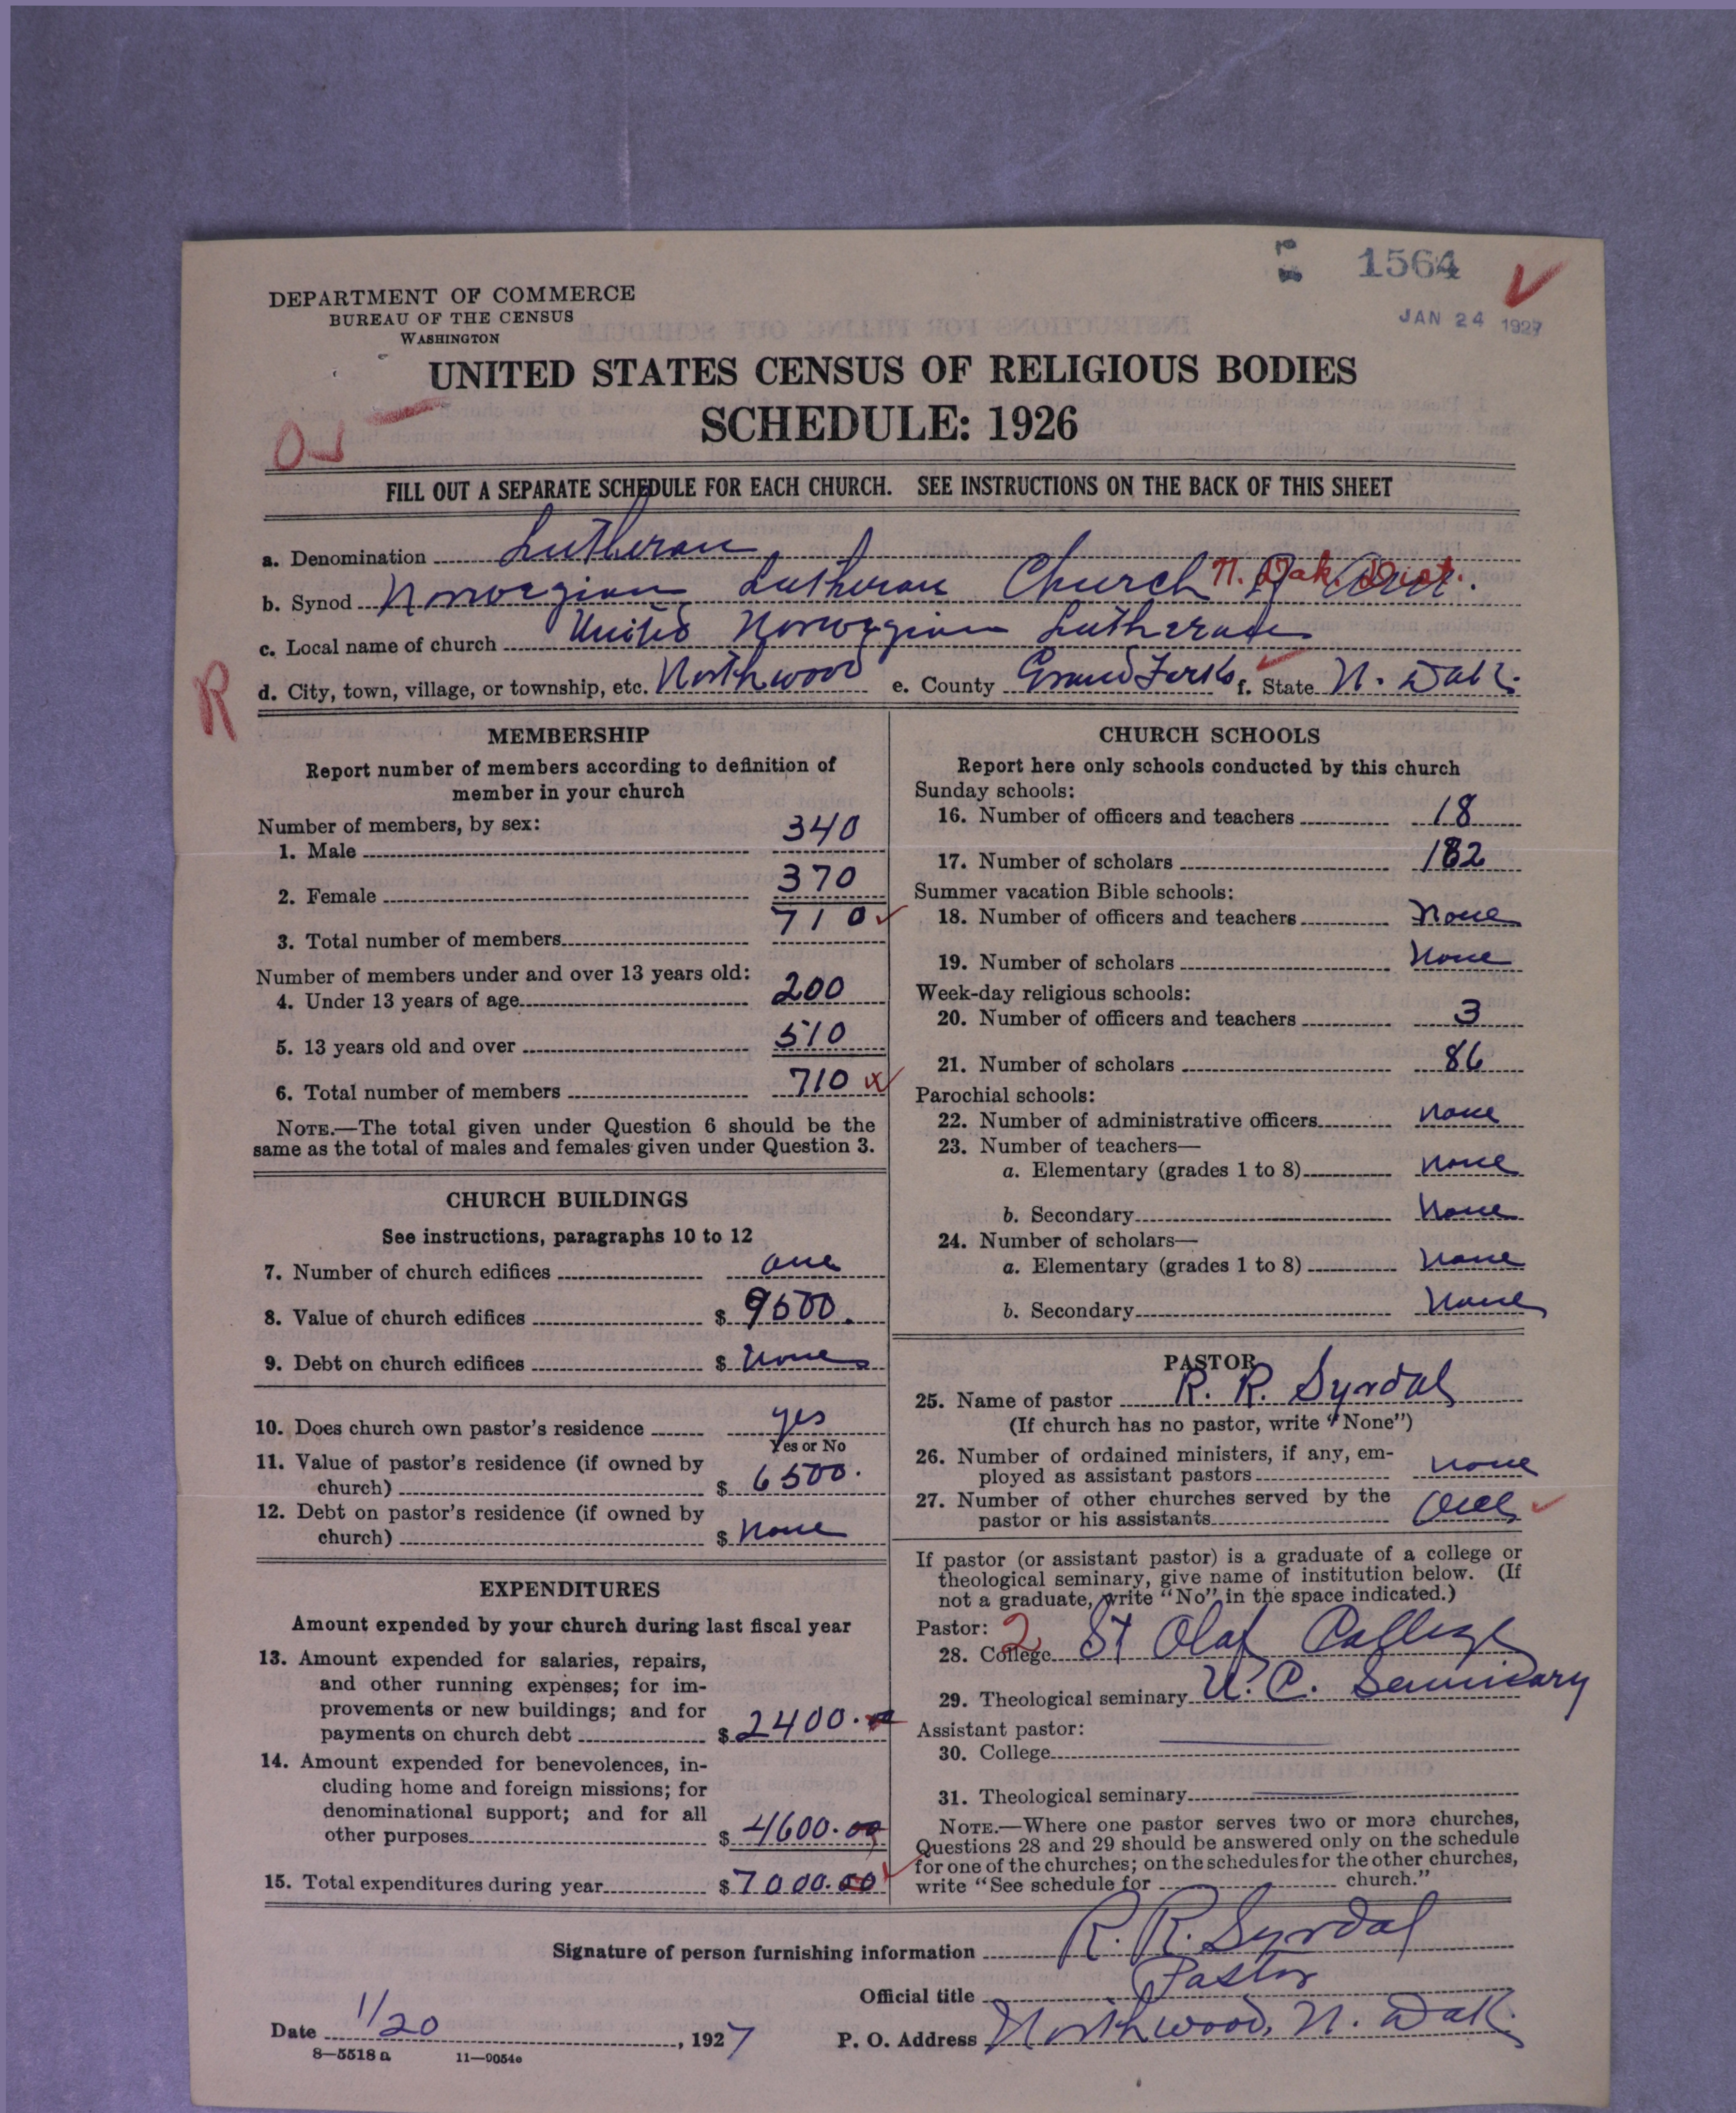 1564
JAN 24 1927
DEPARTMENT OF COMMERCE
BUREAU OF THE CENSUS
WASHINGTON
UNITED STATES CENSUS OF RELIGIOUS BODIES
SCHEDULE: 1926
FILL OUT A SEPARATE SCHEDULE FOR EACH CHURCH. SEE INSTRUCTIONS ON THE BACK OF THIS SHEET
a. Denomination Lutheran
b. Synod Norwegian Lutheran Church of Amer. N. Dak. Dist.
c. Local name of church United Norwegian Lutheran
R
d. City, town, village, or township, etc. Northwood e. County Grand Forks f. State N. Dak.
MEMBERSHIP
Report number of members according to definition of
member in your church
Number of members, by sex:
1. Male 340
2. Female 370
3. Total number of members 710
Number of members under and over 13 years old:
4. Under 13 years of age 200
5. 13 years old and over 510
6. Total number of members 710
NOTE.—The total given under Question 6 should be the
same as the total of males and females given under Question 3.
CHURCH BUILDINGS
See instructions, paragraphs 10 to 12
7. Number of church edifices one
8. Value of church edifices $ 9500.
9. Debt on church edifices $ none
10. Does church own pastor's residence yes
Yes or No
11. Value of pastor's residence (if owned by
church) $ 6500.
12. Debt on pastor's residence (if owned by
church) $ none
EXPENDITURES
Amount expended by your church during last fiscal year
13. Amount expended for salaries, repairs,
and other running expenses; for im-
provements or new buildings; and for
payments on church debt $ 2400.00
14. Amount expended for benevolences, in-
cluding home and foreign missions; for
denominational support; and for all
other purposes $ 4600.00
15. Total expenditures during year $ 7000.00
CHURCH SCHOOLS
Report here only schools conducted by this church
Sunday schools:
16. Number of officers and teachers 18
17. Number of scholars 182
Summer vacation Bible schools:
18. Number of officers and teachers none
19. Number of scholars none
Week-day religious schools:
20. Number of officers and teachers 3
21. Number of scholars 86
Parochial schools:
22. Number of administrative officers none
23. Number of teachers—
a. Elementary (grades 1 to 8) none
b. Secondary none
24. Number of scholars—
a. Elementary (grades 1 to 8) none
b. Secondary none
PASTOR
25. Name of pastor R. R. Syrdal
(If church has no pastor, write "None")
26. Number of ordained ministers, if any, em-
ployed as assistant pastors none
27. Number of other churches served by the
pastor or his assistants one
If pastor (or assistant pastor) is a graduate of a college or
theological seminary, give name of institution below. (If
not a graduate, write "No" in the space indicated.)
Pastor: 2
28. College St Olaf College
29. Theological seminary U. C. Seminary
Assistant pastor:
30. College
31. Theological seminary
NOTE.—Where one pastor serves two or more churches,
Questions 28 and 29 should be answered only on the schedule
for one of the churches; on the schedules for the other churches,
write "See schedule for church."
Signature of person furnishing information R. R. Syrdal
Official title Pastor
Date 1/20, 1927 P. O. Address Northwood, N. Dak.
8—5518 a 11—9054e